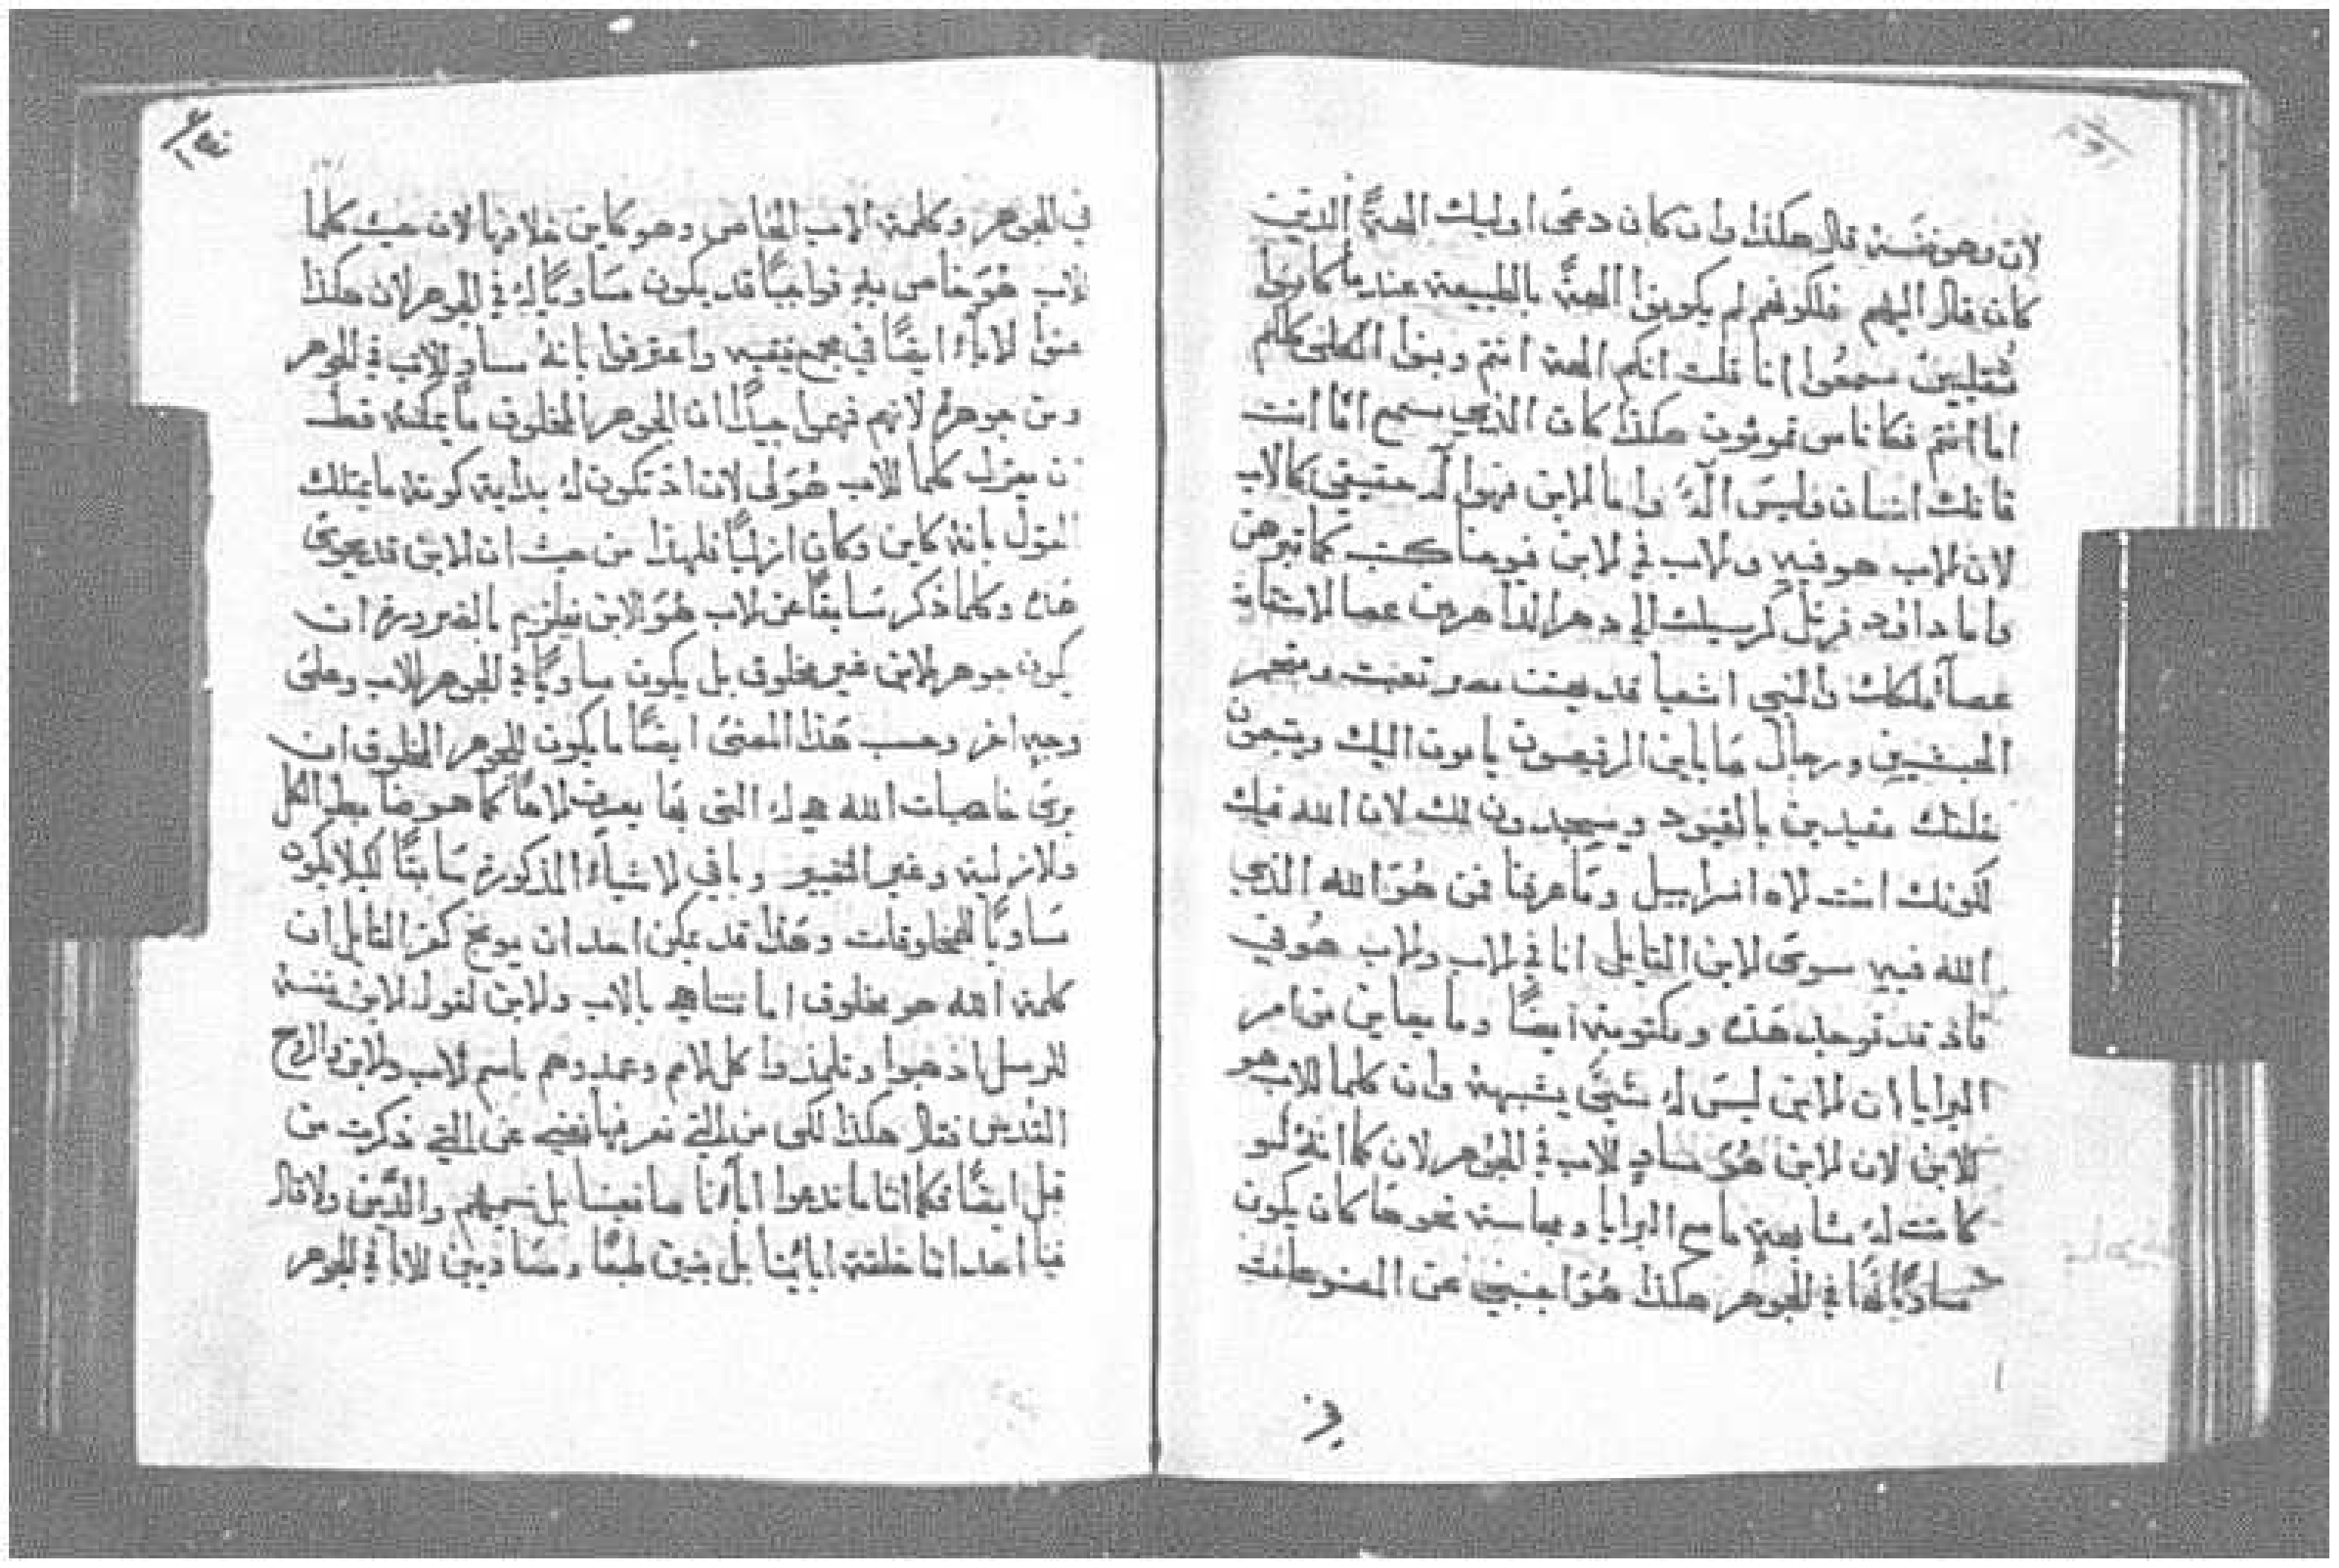 لان وهو نفسه قال هكذا وان كان دعى اوليك الهةً الذين
كان قال اليهم فلكونهم لم يكونوا الهةً بالطبيعة عندما كانوا
سمعوا انا قلت انكم الهة انتم وبنوا العلى كلكم
اما انتم فكاناس تموتون هكذا كان الذي يسمع اما انت
فانك انسان وليس اله واما الابن فهوا اله حقيقي كالاب
لان الاب هو فيه والاب في الابن فيوحنا كتب كما تبرهن
واما داود فرتل كرسيك الى دهر الداهرين عصا الاستقامة
عصا ملكك والنبي اشعيا قد يهتف مصر تعبت ومتجر
الحبشيين ورجال ساباين الرفيعون ياتون اليك ويتبعون
خلفك مقيدين بالقيود ويسجدون لك لان الله فيك
لكونك انت الاه اسراييل وما عرفنا فمن هو الله الذي
الله فيه سوى الابن القايل انا في الاب والاب هو في
فاذ قد توجد هذه ومكتوبة ايضًا وما يعاين من امر
البرايا ان الابن ليس له شيً يشبهه وان كلما للاب هو
للابن لان الابن هو مساوٍ للاب في الجوهر لان كما انه لو
كانت له مشابهةٍ ما مع البرايا ومجانسة نحوها كان يكون
مساويًا لها في الجوهر هكذا هو اجنبي عن المخلوقات
في الجوهر وكلمة الاب الخاص وهو كاين خلافها لان حيث كلما
للاب هو خاص به فواجبًا قد يكون مساويًا له في الجوهر لان هكذا
الاباء ايضًا في مجمع نيقيه واعترفوا بانه مساوٍ للاب في الجوهر
ومن جوهره لانهم فهموا جيدًا ان الجوهر المخلوق ما يمكنه قط
ان يقول كلما للاب هو لى لان اذ تكون له بداية كونه ما يمتلك
القول بانه كاين وكان ازليًا فلهذا من حيث ان الابن قد يحوى
هذه وكلما ذكر سابقًا عن الاب هو للابن فيلزم بالضرورة ان
يكون جوهر الابن غير مخلوق بل يكون مساويًا في الجوهر للاب وعلى
وجه اخر وحسب هذا المعنى ايضًا ما يكون للجوهر المخلوق ان
يرى خاصيات الله هذه التي بها يعرف الاها كما هو ضابط الكل
والازلية وغير التغيير وباقي الاشياء المذكورة سابقًا لكيلا يكون
مساويًا للمخلوقات وهكذا قد يمكن احد ان يوبخ كفر القايل ان
كلمة الله هو مخلوق اما بالاب والابن لقول الابن نفسه
للرسل اذهبوا وتلمذوا كل الامم وعمدوهم باسم الاب والابن والروح
القدس فقال هكذا لكى من التي نعرفها نفهم عن التي ذكرت من
قبل ايضًا فكما اننا ما ندعوا اباءنا صانعينا بل نسميهم والدين ولا قال
فينا احد اننا خلقة ابائنا بل بنين طبعًا ومساويين للابا في الجوهر